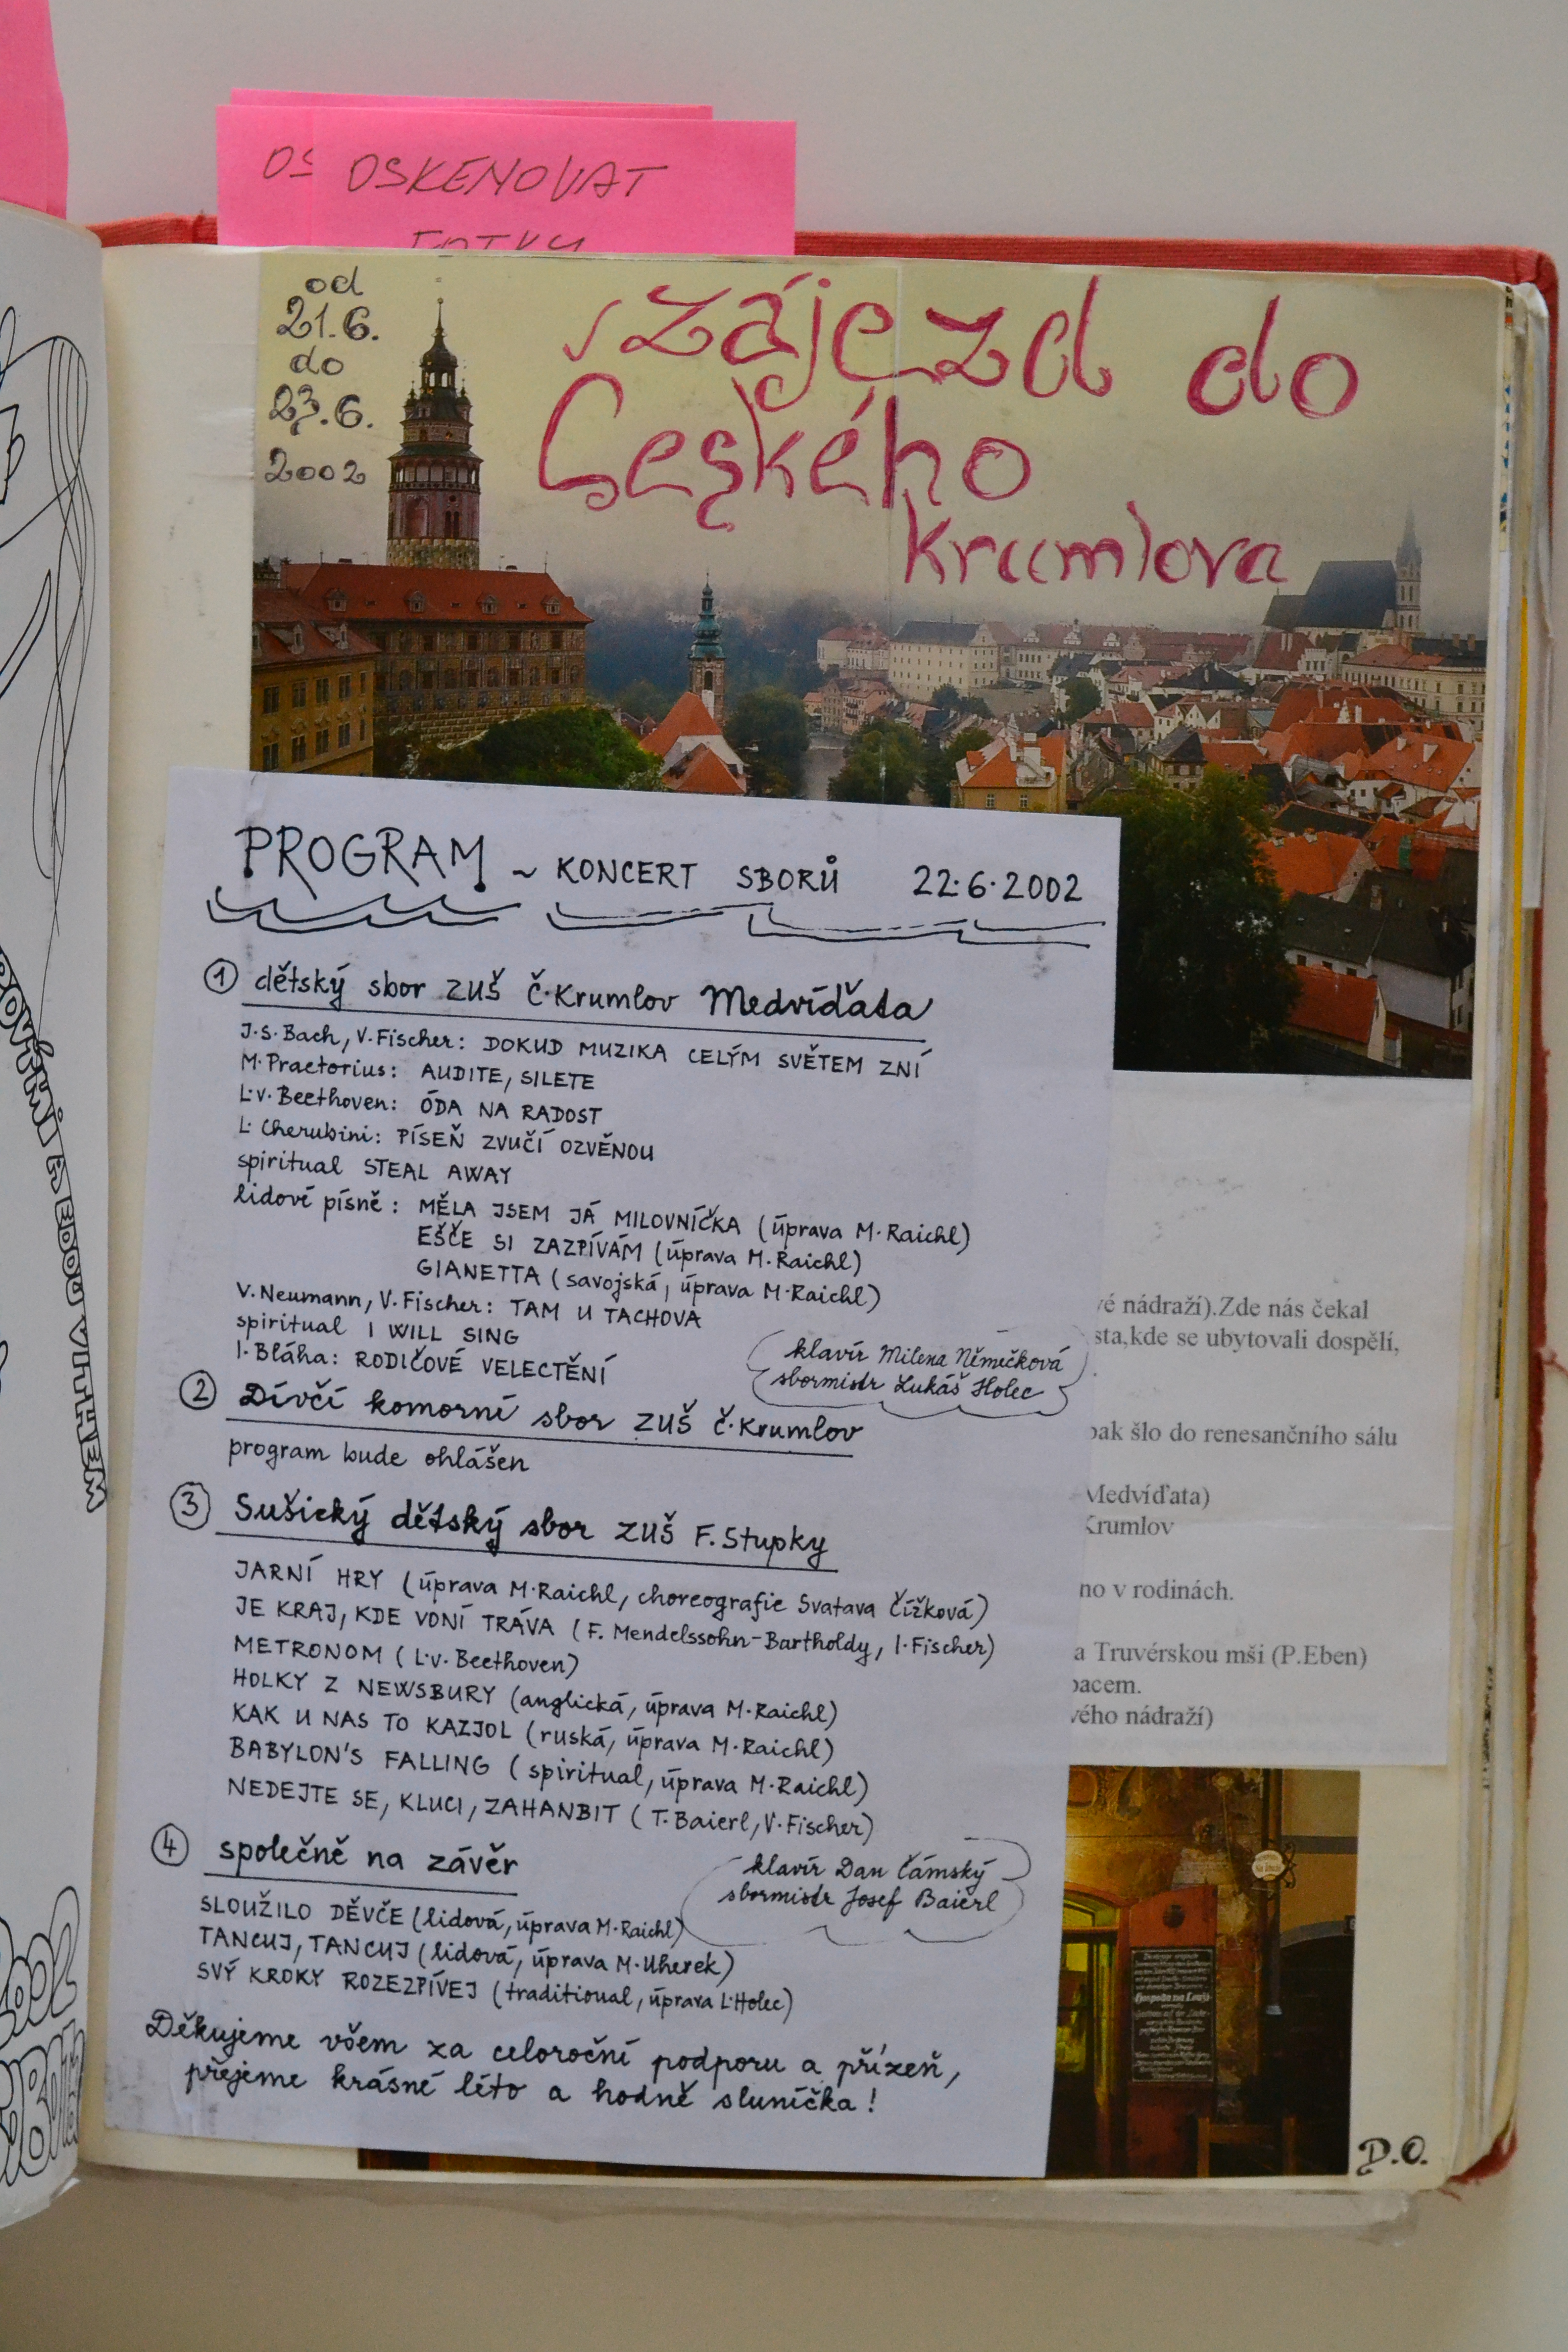 OS OSKENOVAT
FOTKY
od
21.6.
do
23.6.
2002
zájezd do
Českého
Krumlova
PROGRAM ~ KONCERT SBORŮ 22.6.2002
① dětský sbor ZUŠ Č.Krumlov Medvíďata
J.S.Bach, V.Fischer: DOKUD MUZIKA CELÝM SVĚTEM ZNÍ
M.Praetorius: AUDITE, SILETE
L.v.Beethoven: ÓDA NA RADOST
L. Cherubini: PÍSEŇ ZVUČÍ OZVĚNOU
spiritual STEAL AWAY
lidové písně: MĚLA JSEM JÁ MILOVNÍČKA (úprava M.Raichl)
EŠČE SI ZAZPÍVÁM (úprava M.Raichl)
GIANETTA (savojská, úprava M.Raichl)
V.Neumann, V.Fischer: TAM U TACHOVA
spiritual I WILL SING
I.Bláha: RODIČOVÉ VELECTĚNÍ
klavír Milena Němečková
sbormistr Lukáš Holec
② Dívčí komorní sbor ZUŠ Č.Krumlov
program bude ohlášen
③ Sušický dětský sbor ZUŠ F.Stupky
JARNÍ HRY (úprava M.Raichl, choreografie Svatava Čížková)
JE KRAJ, KDE VONÍ TRÁVA (F. Mendelssohn-Bartholdy, I.Fischer)
METRONOM (L.v. Beethoven)
HOLKY Z NEWSBURY (anglická, úprava M.Raichl)
KAK U NAS TO KAZJOL (ruská, úprava M.Raichl)
BABYLON'S FALLING (spiritual, úprava M.Raichl)
NEDEJTE SE, KLUCI, ZAHANBIT (T.Baierl, V.Fischer)
klavír Dan Čámský
sbormistr Josef Baierl
④ společně na závěr
SLOUŽILO DĚVČE (lidová, úprava M.Raichl)
TANCUJ, TANCUJ (lidová, úprava M.Uherek)
SVÝ KROKY ROZEZPÍVEJ (traditional, úprava L.Holec)
Děkujeme všem za celoroční podporu a přízeň,
přejeme krásné léto a hodně sluníčka!
vé nádraží).Zde nás čekal
sta,kde se ubytovali dospělí,
pak šlo do renesančního sálu
Medvíďata)
Krumlov
no v rodinách.
a Truvérskou mši (P.Eben)
pacem.
vého nádraží)
D.O.
2002